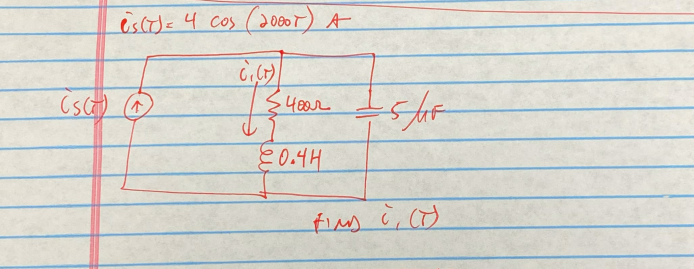 is(T) = 4 cos (2000T) A
i₁(T)
is(T)
400Ω
5 μF
0.4H
FIND i₁(T)